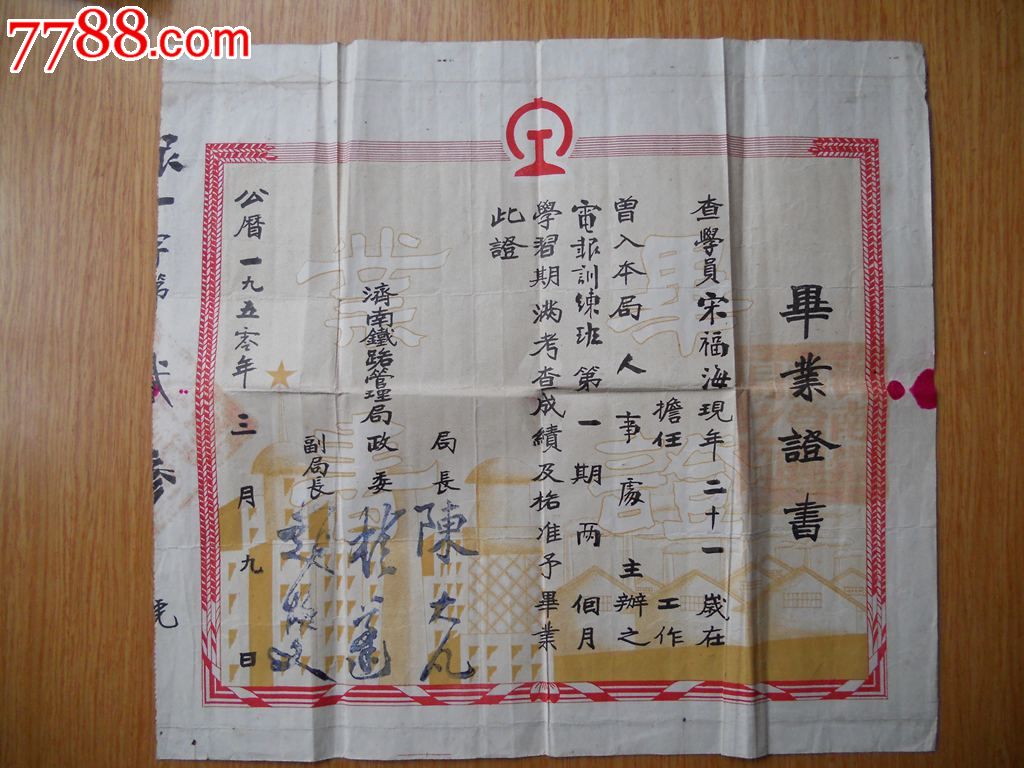 7788.com
畢業證書
查學員宋福海現年二十一歲在
擔任 工作
曾入本局人事處主辦之
電報訓練班第一期两個月
學習期满考查成績及格准予畢業
此證
局長陳大凡
濟南鐵路管理局政委
副局長
公曆一九五零年三月九日
一字第 貳 參 號
畢業證書